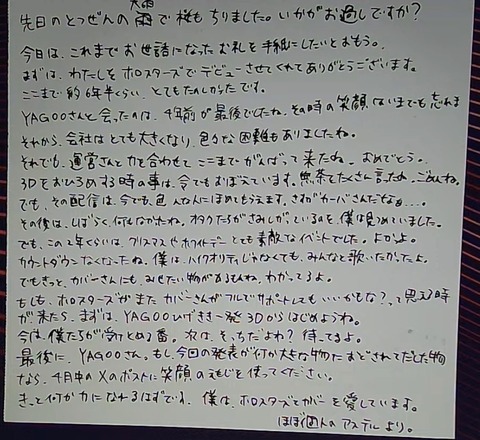 大雨
先日のとつぜんの雨で桜もちりました。いかがお過しですか?
今日は、これまでお世話になったお礼を手紙にしたいとおもう。
まずは、わたしをホロスターズでデビューさせてくれてありがとうございます。
ここまで約6年半くらい、とてもたのしかったです。
YAGOOさんと会ったのは、4年前が最後でしたね。その時の笑顔はいまでも忘れま
それから、会社はとても大きくなり、色々な困難もありましたね。
それでも、運営さんと力を合わせてここまでがんばって来たね。おめでとう。
3Dをおひろめする時の事は、今でもおぼえています。無茶をたくさん言ったね。ごめんね。
でも、その配信は、今でも色んな人にほめてもらえます。さすがカーバさんだなぁ…。
その後は、しばらく何もなかたね。オタクたちがさみしがっているのを、僕は見つめていました。
でも、この2年くらいは、クリスマスやホワイトデーとても素敵なイベントでした。よかよ。
カウントダウンなくなったね。僕は、ハイクオリティじゃなくても、みんなと歌いたかったよ。
でもきっと、カバーさんにも、みせたい物があるもんね。わかってるよ。
もしも、ホロスターズがまたカバーさんがフルでサポートしてもいいかもな?って思える時
が来たら、まずは、YAGOOひげき一発3Dからはじめようね。
今は、僕たちが受けとめる番。次は、そっちだよわ?待ってるよ。
最後に、YAGOOさん。もし今回の発表が何か大きな物におどされてだした物
なら、4月中のXのポストに笑顔のえもじを使ってください。
きっと何か力になれるはずです。僕は、ホロスターズとカバーを愛しています。
ほぼ個人のアステルより。